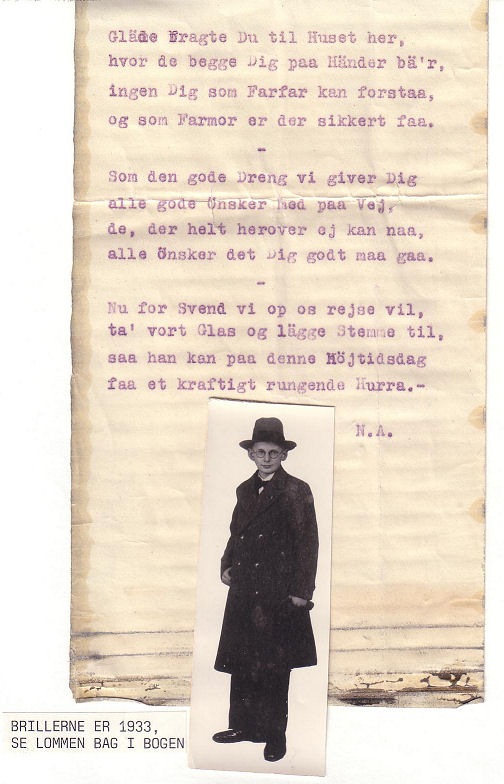 Gläde bragte Du til Huset her,
hvor de begge Dig paa Händer bä'r,
ingen Dig som Farfar kan forstaa,
og som Farmor er der sikkert faa.
-
Som den gode Dreng vi giver Dig
alle gode Önsker med paa Vej,
de, der helt herover ej kan naa,
alle Önsker det Dig godt maa gaa.
-
Nu for Svend vi op os rejse vil,
ta' vort Glas og lägge Stemme til,
saa han kan paa denne Höjtidsdag
faa et kraftigt rungende Hurra.-
N.A.
BRILLERNE ER 1933,
SE LOMMEN BAG I BOGEN